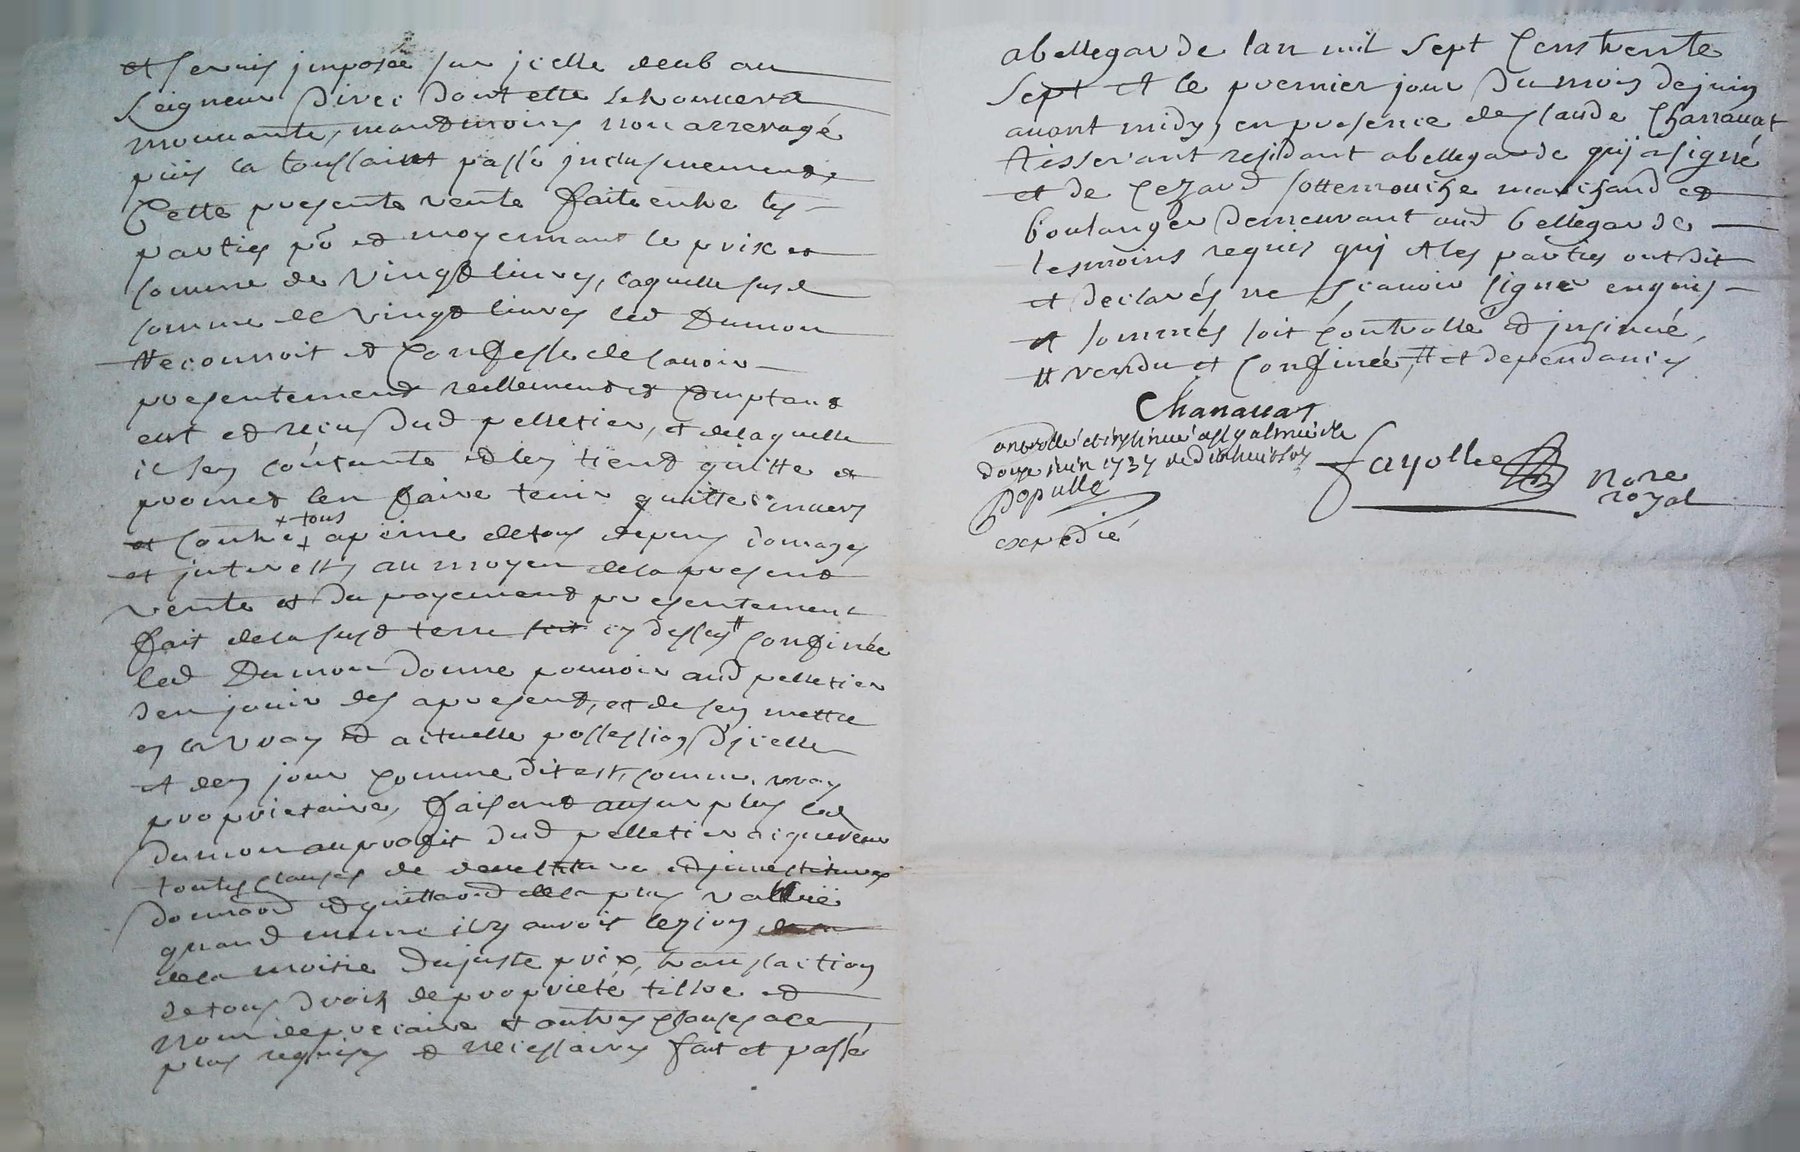 et servis imposée sur jcelle deub au
Seigneur direc dont elle se trouvera
mouvante, mandmoins non arreragé
puis la toussaint passé jnclusivement,
Cette presente vente faite entre les
parties po et moyennant le prix et
somme de vingt livres, laquelle susd
somme de vingt livres led Dumon
Reconnoit et Confesse de lavoir
presentement reellement et Comptant
eut et reçu dud pelletier, et de laquelle
il sen contante et len tient quitte et
promet len faire tenir quitte envers
et contre + tous + apeine de tous depens domages
et jnterests au moyen de la present
vente et du payement presentement
fait de la susd terre cy dessus # Confinée
led Dumon donne pouvoir aud pelletier
den jouir des apresent, et de sen mettre
en vray et actuelle possession djcelle
et den jouir comme dit est, comme vray
proprietaire, faisant au surplus led
dumon au profit dud pelletier acquereur
toutes clauses de devestiture et jnvestiture
donnant et quittant de la plus vallue
quand mème il y auroit lezion
de la moitie du juste prix, translaction
de tous droits de proprieté tiltre et
nom de precaire et autres clauses ace
plus requises et necessaires fait et passé
abellegarde lan mil sept Cens trente
sept et le premier jour du mois de juin
avant midy, en presence de Claude Charravat
tisserant residant abellegarde qui a signé
et de Cezard sottemouche marchand et
boulanger demeurant aud bellegarde
tesmoins requis qui et les parties ont dit
et declarés ne scavoir signer enquis
et sommés soit Controllé et jnsinué,
# vendu et Confinée, # et dependances
Charavat
Controllé et insinué a st galmier le
douze juin 1737 recd dixhuit sols
Populle
fayolle Nore
royal
expedié